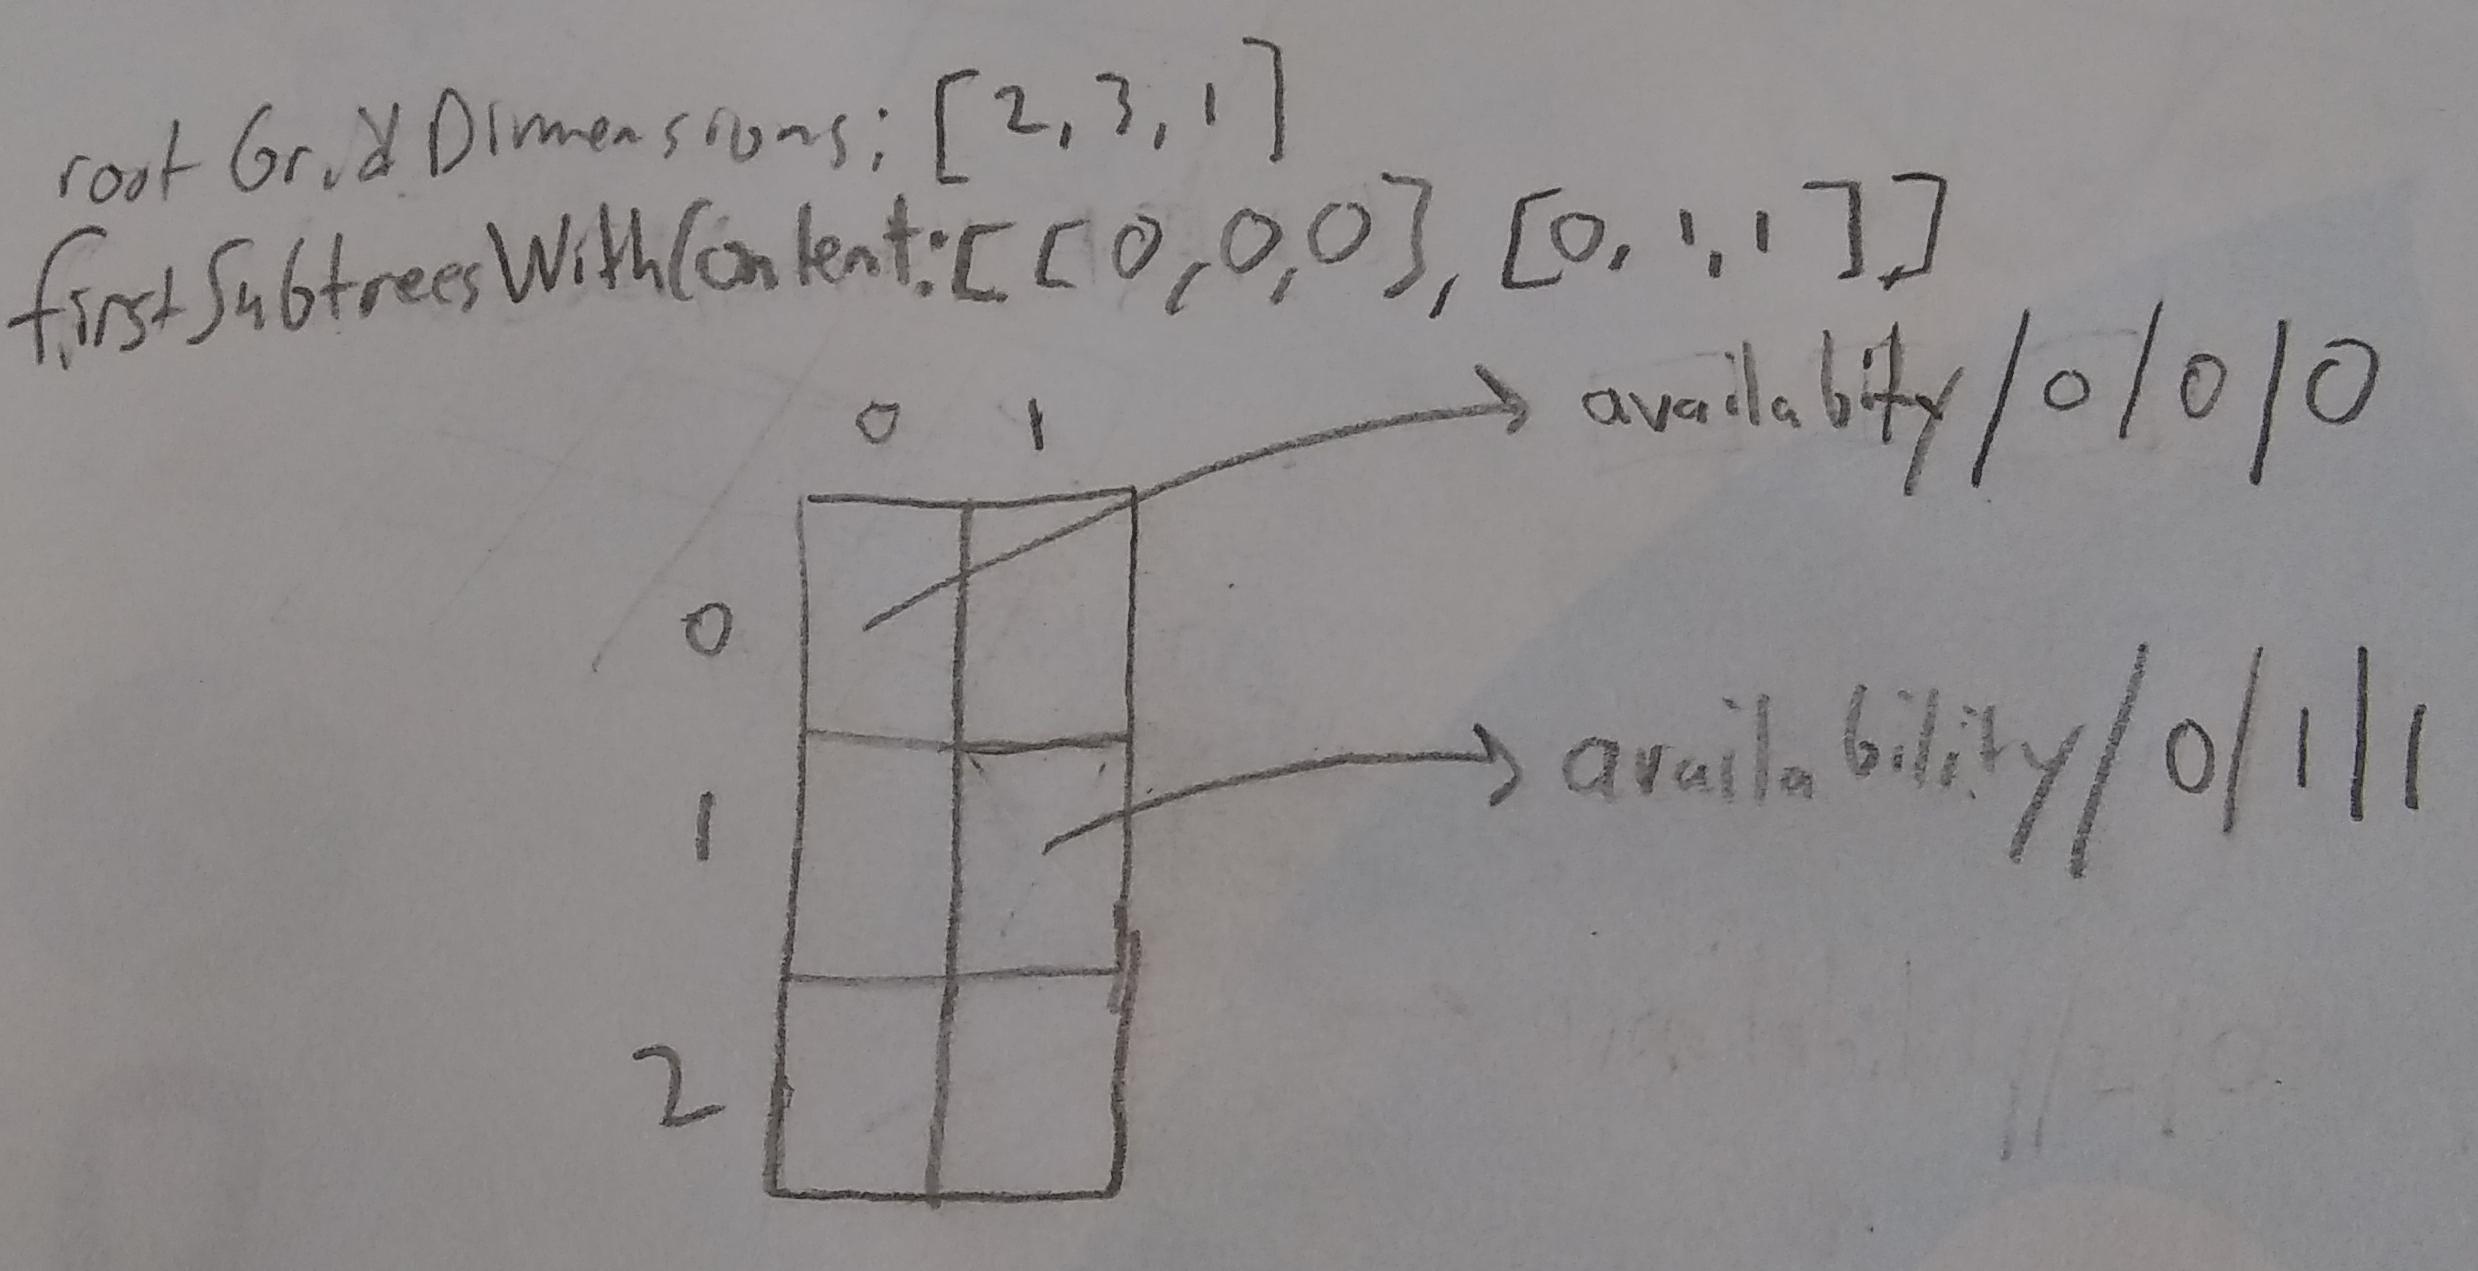 rootGridDimensions: [2, 3, 1]
firstSubtreesWithContent: [[0,0,0], [0,1,1]]
availabity/0/0/0
0 1
0
availability/0/1/1
1
2